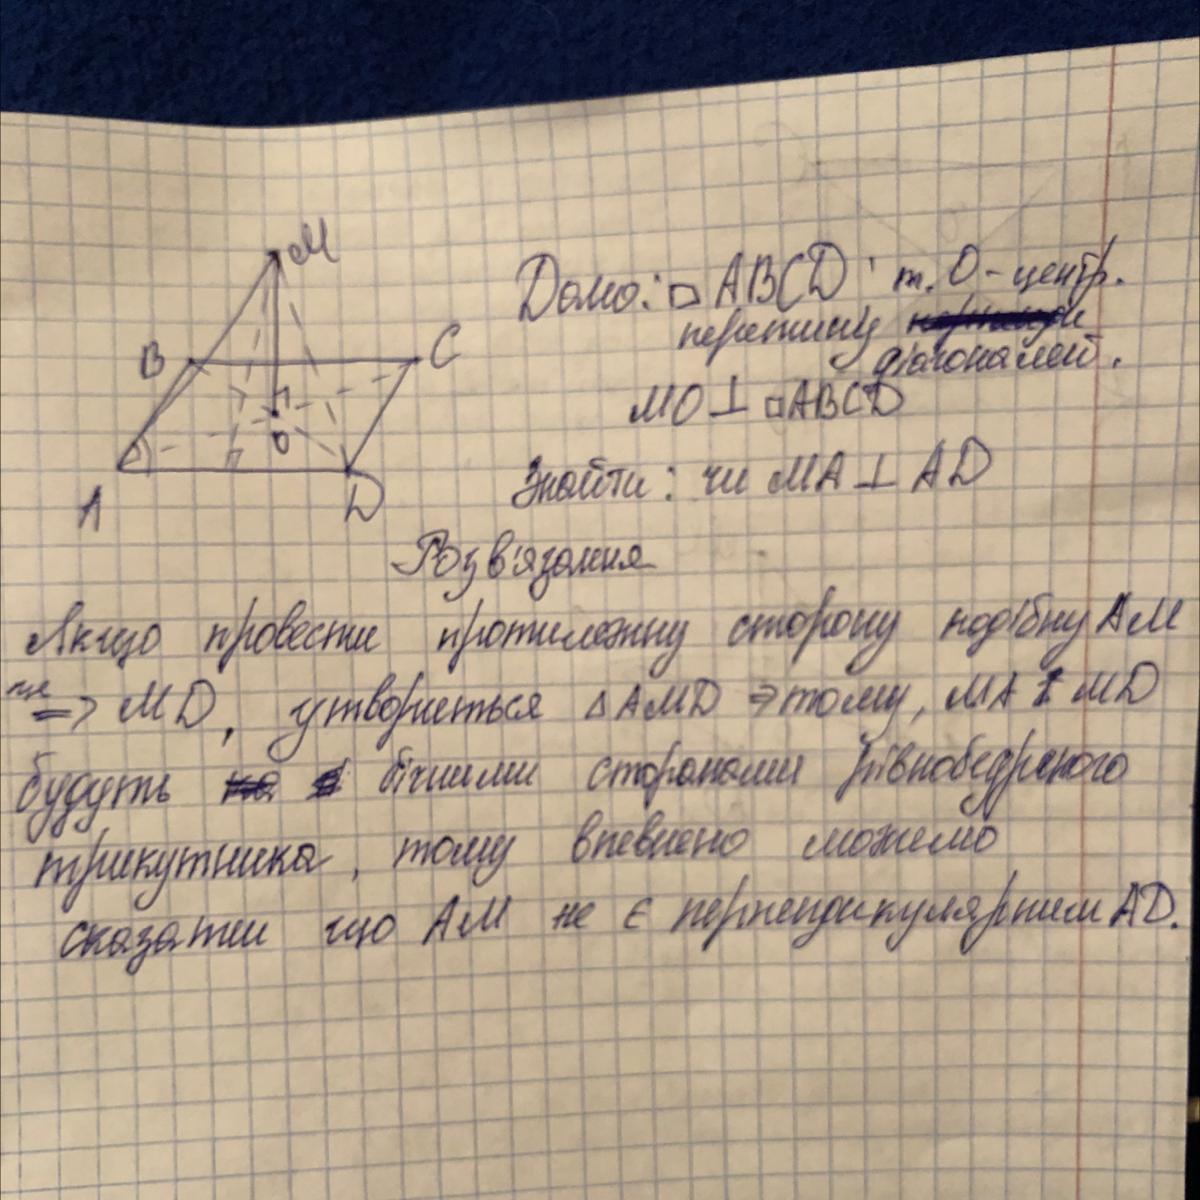 M
B
C
O
A
D
Дано: □ ABCD; т. O - центр.
перетину
діагоналей.
MO ⊥ □ABCD
Знайти: чи MA ⊥ AD
Розв'язання
Якщо провести протилежну сторону подібну AM
це => MD, утвориться △ AMD тому, MA і MD
будуть бічними сторонами рівнобедреного
трикутника, тому впевнено можемо
сказати що AM не є перпендикулярним AD.